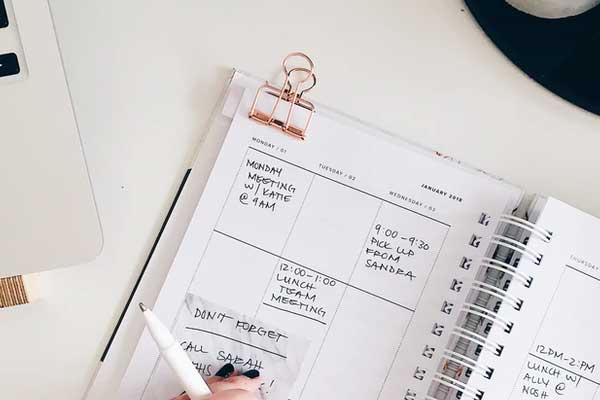 JANUARY 2018
MONDAY / 01
MONDAY
MEETING
W/ KATIE
@ 9AM
TUESDAY / 02
12:00-1:00
LUNCH
TEAM
MEETING
WEDNESDAY / 03
9:00-9:30
PICK UP
FROM
SANDRA
DON'T FORGET
CALL SARAH
THURSDAY
12PM-2PM
LUNCH W/
ALLY @
NOSH